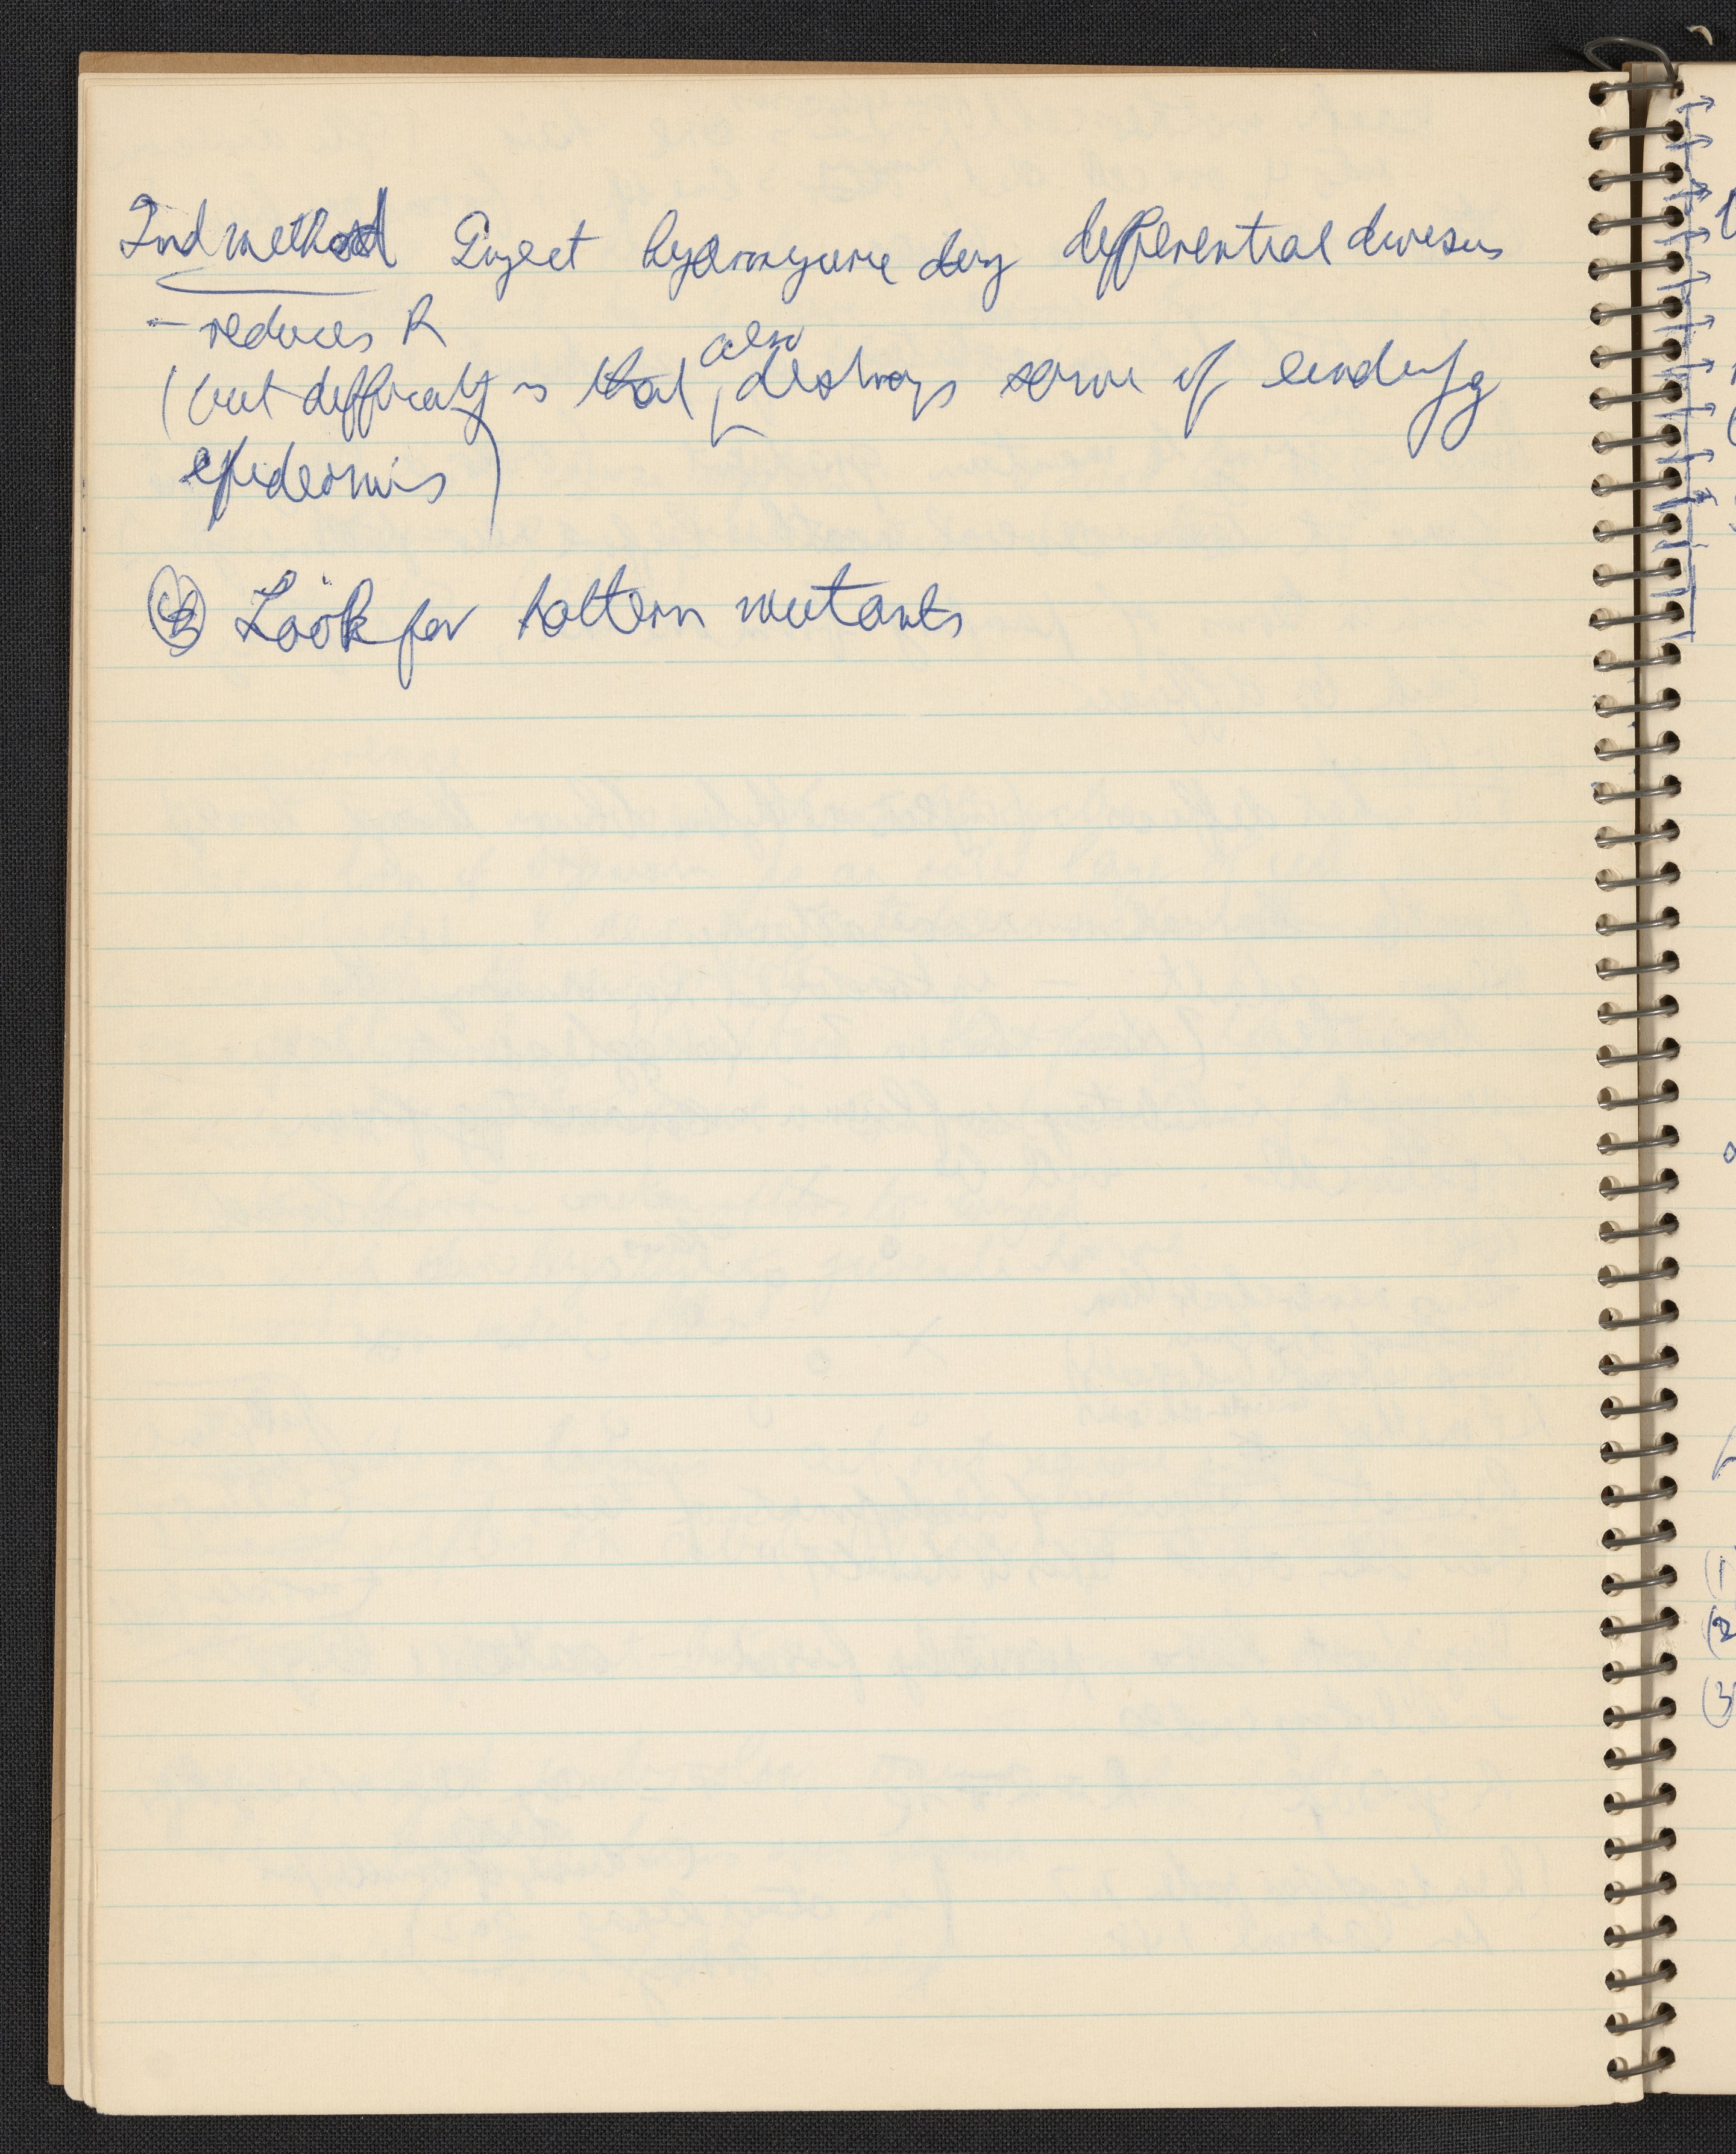 2nd method Inject mitomycin during differential division
- reduces R
(but difficulty is that also destroys some of underlyg
epidermis)
Look for pattern mutants
(1
(2
(3